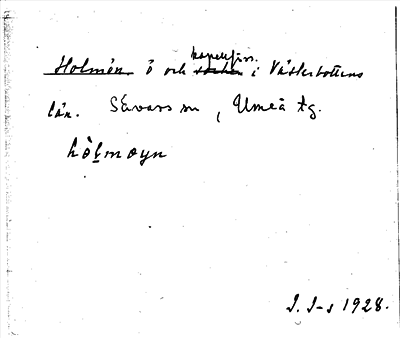 Holmön ö och kapellförs. i Västerbottens
län. Sävars sn, Umeå tg.
hòlmøyn
J. J-s 1928.